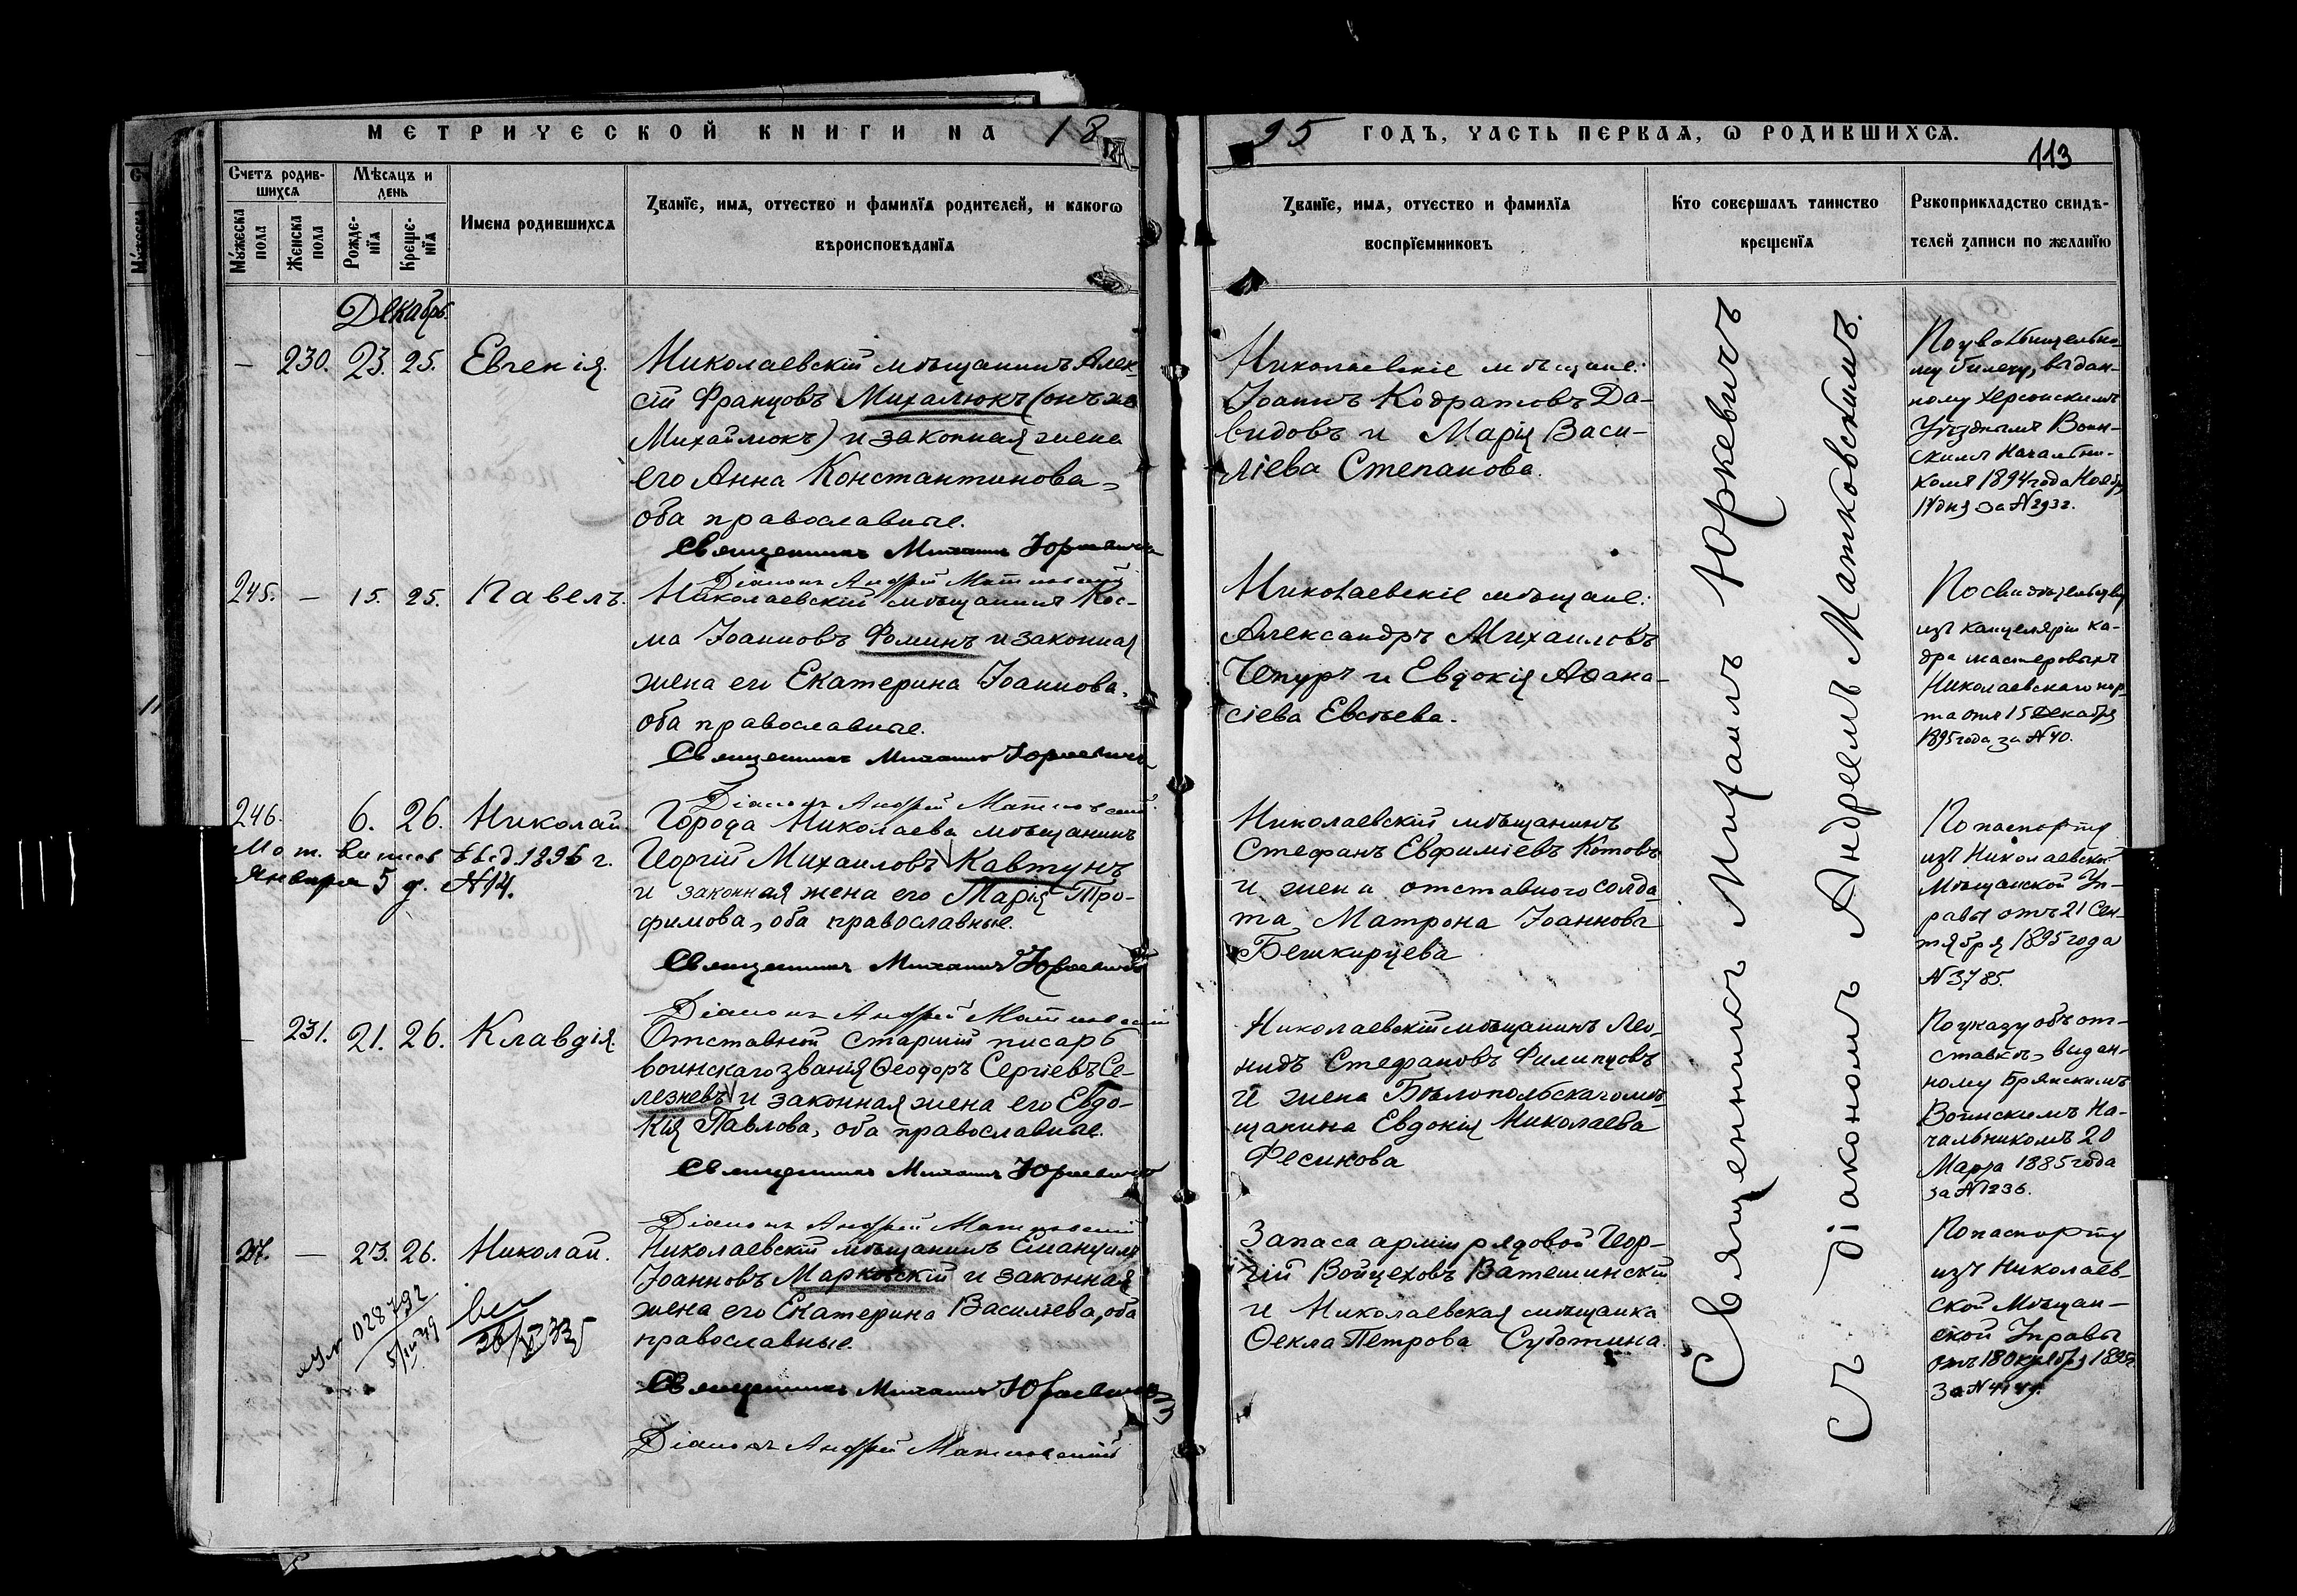 МЕТРИЧЕСКОЙ КНИГИ НА 18
95 ГОДЪ, ЧАСТЬ ПЕРВАѦ, Ѡ РОДИВШИХСѦ.
113
Счетъ родив-
шихсѧ
Мѣсѧцъ и
день
Мужеска
пола
Женска
пола
Рожде-
нїѧ
Креще-
нїѧ
Имена родившихсѧ
Званїе, имѧ, отчество и фамилїѧ родителей, и какогѡ
вѣроисповѣданїѧ
Званїе, имѧ, отчество и фамилїѧ
воспрїемниковъ
Кто совершалъ таинство
крещенїѧ
Рукоприкладство свидѣ-
телей записи по желанїю
Декабрь.
– 230. 23. 25. Евгенія.
Николаевскій мѣщанинъ Алек-
сій Францовъ Михалюкъ (онъ же
Михайлюкъ) и законная жена
его Анна Константинова,
оба православные.
Священникъ Михаилъ Юркевичъ
Діаконъ Андрей Матковскій
Николаевскіе мѣщане:
Іоаннъ Кодратовъ Да-
видовъ и Марія Васи-
ліева Степанова.
По увольнительно-
му билету, выдан-
ному Херсонскимъ
Уѣзднымъ Воин-
скимъ Начальни-
комъ 1894 года Ноябр
дня за № 2932.
245. – 15. 25. Павелъ.
Николаевскій мѣщанинъ Кос-
ма Іоанновъ Фоминъ и законная
жена его Екатерина Іоаннова,
оба православные.
Священникъ Михаилъ Юркевичъ
Діаконъ Андрей Матковскій
Николаевскіе мѣщане:
Александръ Михаиловъ
Чепуръ и Евдокія Аѳана-
сіева Евсѣева.
По свидѣтельству
изъ канцеляріи ка-
дра мастеровыхъ
Николаевскаго пор-
та отъ 15 Декабря
1895 года за № 40.
246. 6. 26. Николай
Мет. выпись выд. 1896 г.
Января 5 д. № 14.
Города Николаева мѣщанинъ
Георгій Михаиловъ Кавтунъ
и законная жена его Марія Тро-
фимова, оба православные.
Священникъ Михаилъ Юркевичъ
Діаконъ Андрей Матковскій
Николаевскій мѣщанинъ
Стефанъ Евфиміевъ Котовъ
и жена отставного солда-
та Матрона Іоаннова
Бешкирцева
По паспорту
изъ Николаевской
Мѣщанской Уп-
равы отъ 21 Сен-
тября 1895 года
№ 3785.
– 231. 21. 26. Клавдія
Отставной старшій писарь
воинскаго званія Ѳеодоръ Сергіевъ Се-
лезневъ и законная жена его Евдо-
кія Павлова, оба православные.
Священникъ Михаилъ Юркевичъ
Діаконъ Андрей Матковскій
Николаевскій мѣщанинъ Лео-
нидъ Стефановъ Филипцовъ
и жена Бѣлопольскаго мѣ-
щанина Евдокія Николаева
Фесикова
По указу объ от-
ставкѣ, выдан-
ному Брянскимъ
Воинскимъ На-
чальникомъ 20
Марта 1885 года
за № 1236.
247. – 23. 26. Николай.
028792
Николаевскій мѣщанинъ Емануилъ
Іоанновъ Марковскій и законная
жена его Екатерина Василіева, оба
православные.
Священникъ Михаилъ Юркевичъ
Діаконъ Андрей Матковскій
Запаса арміи рядовой Геор-
гій Войцеховъ Ватешинскій
и Николаевская мѣщанка
Ѳекла Петрова Суботина.
По паспорту
изъ Николаев-
ской Мѣщан-
ской Управы
отъ 18 Октября 1895г.
за №
Священникъ Михаилъ Юркевичъ
Съ Діакономъ Андреемъ Матковскимъ.